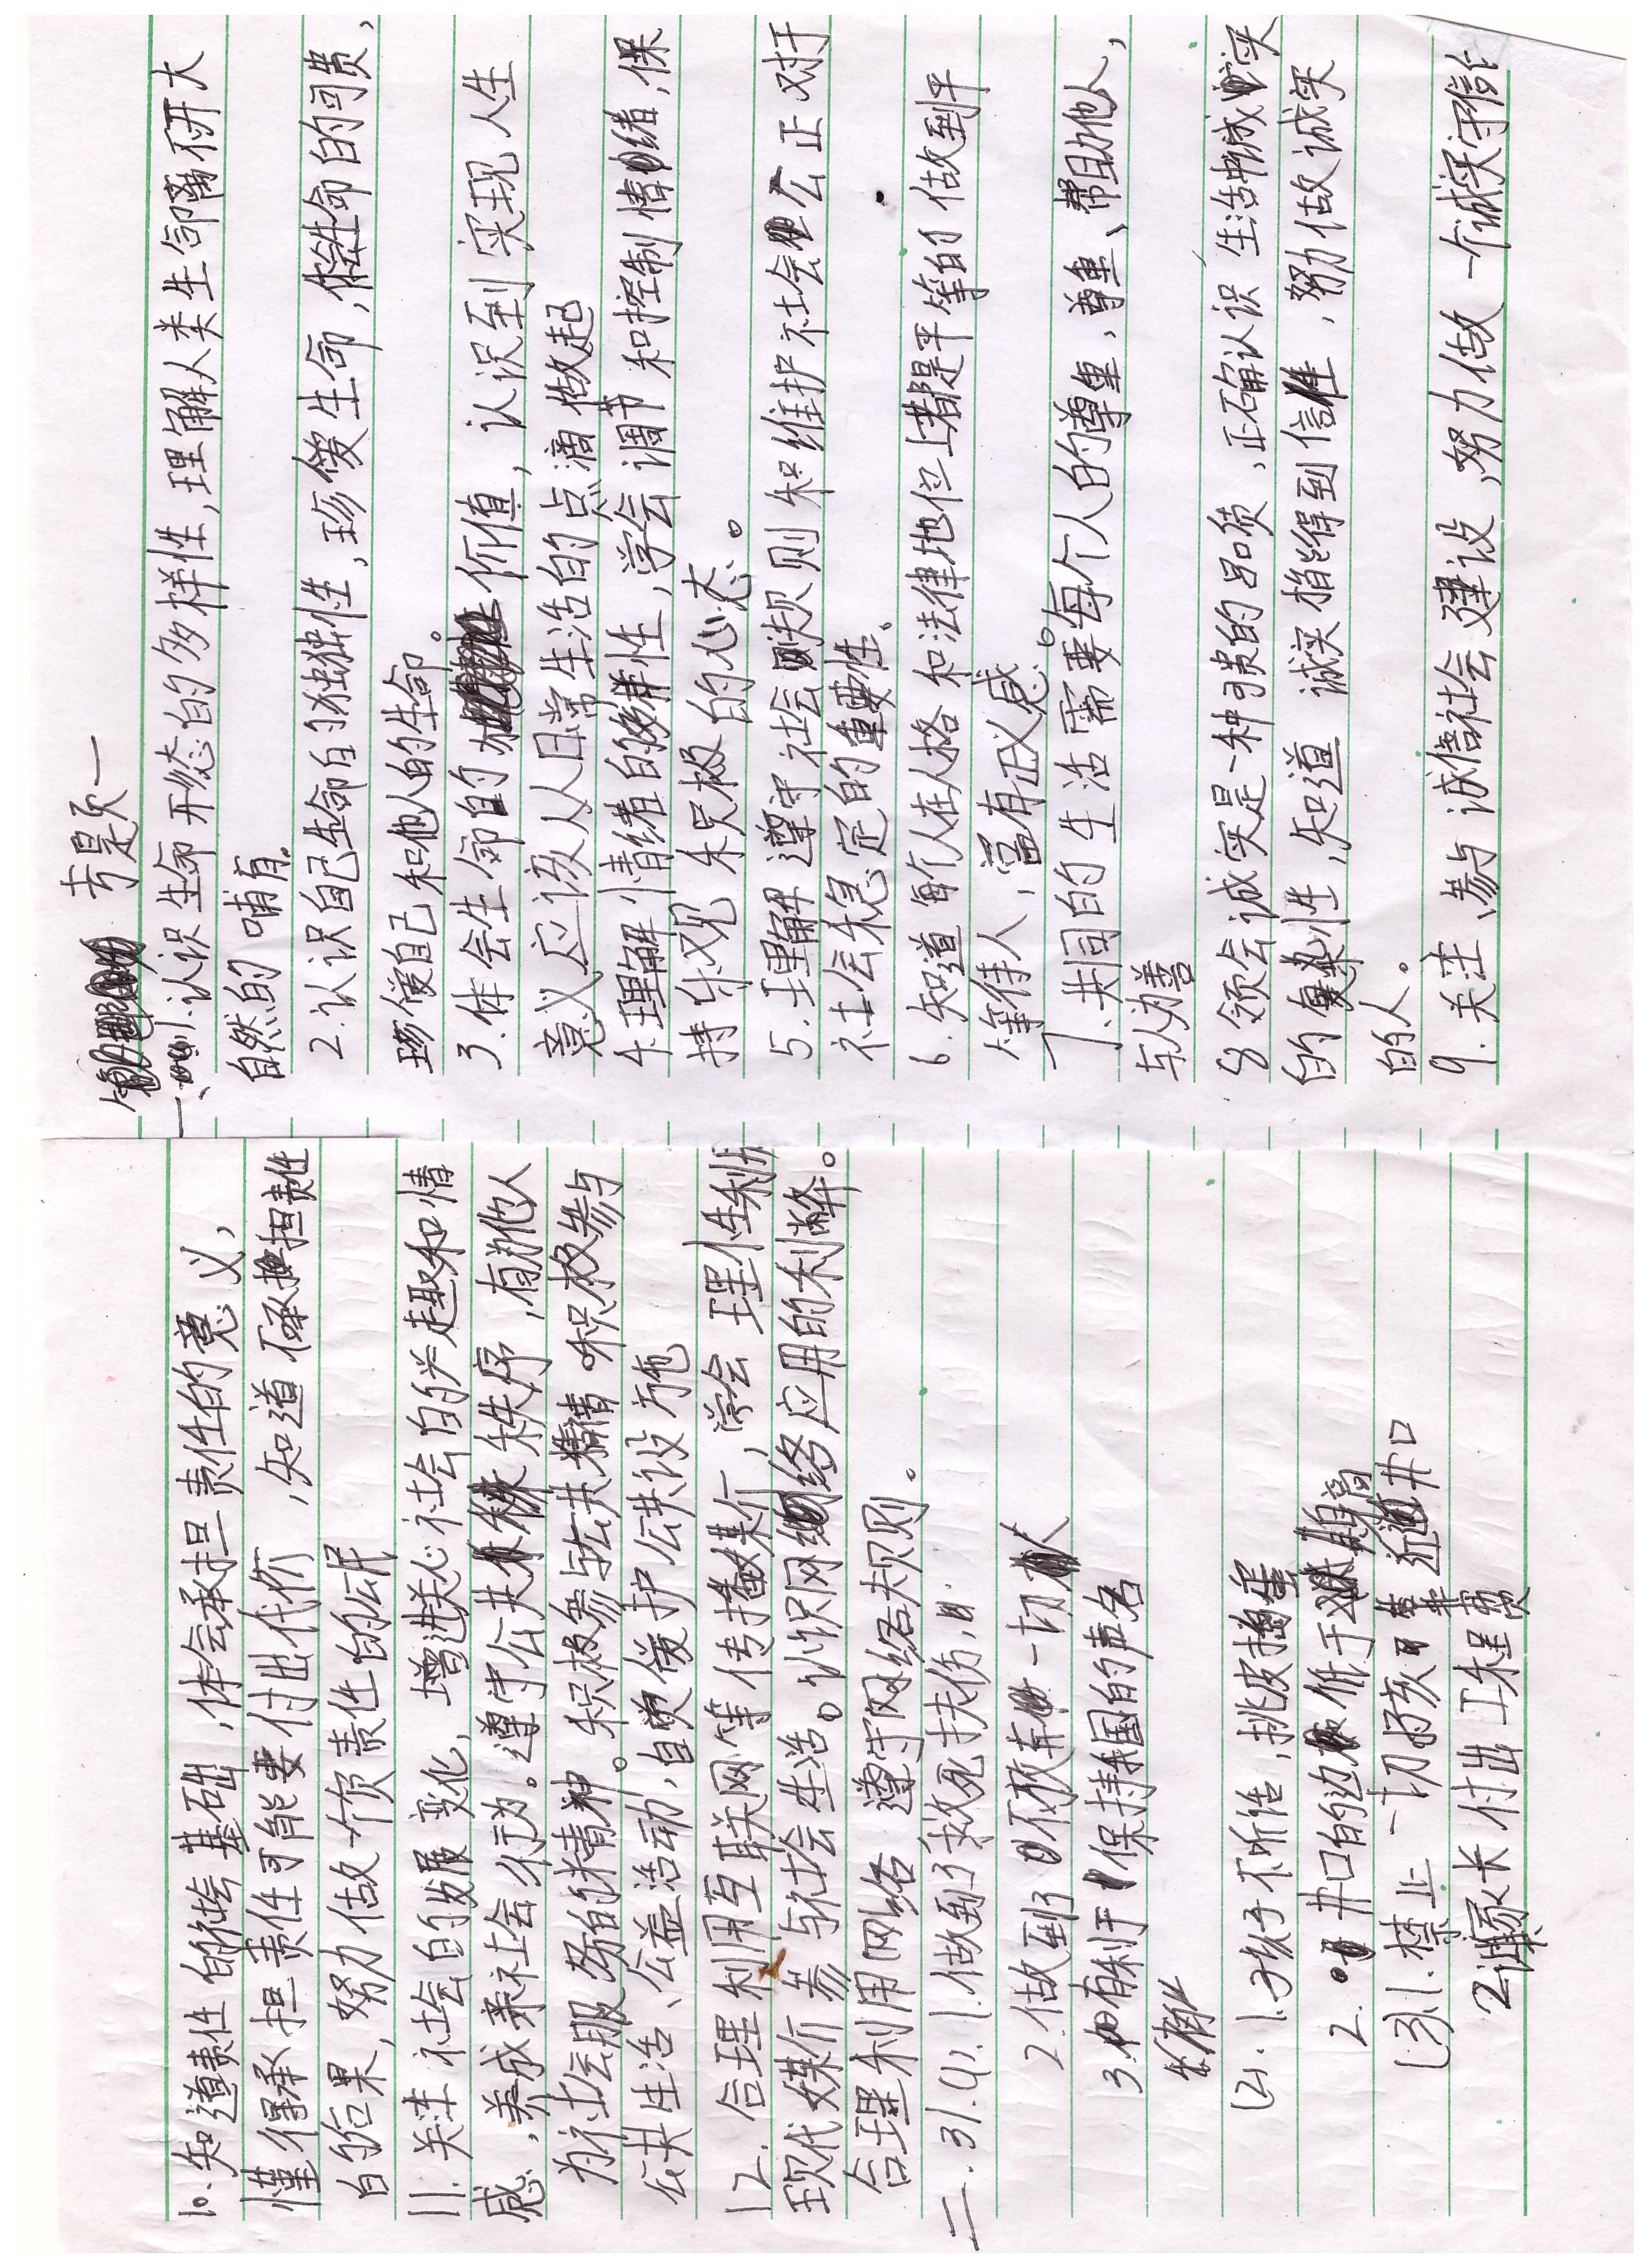 专题一
一、1.认识生命形态的多样性,理解人类生命离不开大
自然的哺育。
2.认识自己生命的独独性,珍爱生命,体生命的可贵,
珍爱自己和他人的生命。
3.体会生命的价值,认识到实现人生
意义应该从日常生活的点滴做起
4.理解情绪的多样性,学会调节和控制情绪,保
持乐观、积极的心态。
5.理解遵守社会规则和维护社会公正对于
社会稳定的重要性。
6.知道每个人在人格和法律地位上都是平等的 做到平
等待人,富有正义感。
7.共同的生活需要每个人的尊重,尊重、帮助他人,
与人为善
8领会诚实是一种可贵的品质,正确认识生活中诚实
的复杂性,知道 诚实 才能得到信任,努力做诚实
的人。
9.关注、参与诚信社会建设,努力做一个诚实守信
10.知道责任的 基础,体会承担责任的意义,
懂得承担责任可能要付出代价,知道不承担责任
的后果,努力做一个负责任的公民
11.关注社会的发展变化,增进关心社会的兴趣和情
感,养成亲社会行为。遵守公共秩序,有为他人
为社会服务的精神。积极参与公共 积极参与
公共生活、公益活动,自觉爱护公共设施
12.合理利用互联网等传播媒介,学会理性利用
现代媒介参与社会生活。认识网络应用的利弊。
合理利用网络 遵守网络规则。
二.31.(1).1.做到了救死扶伤,
2.做到了不放弃一切
3.有利于保持国的声名
(2).1.孩子不听话,挑皮捣蛋
2.井口的边 低于 身高
(3)1.禁止一切 孩 靠近井口
2.